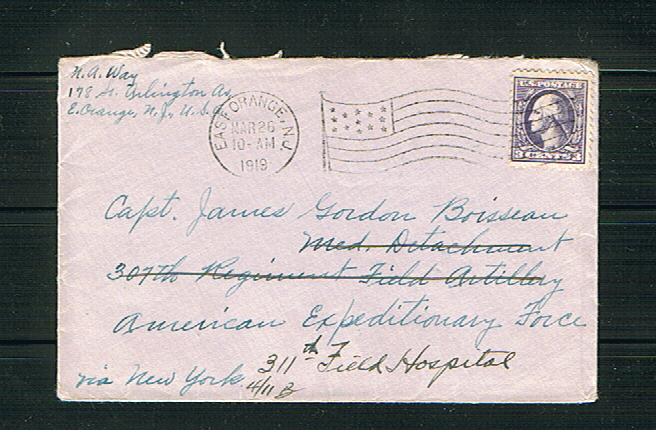 N. A. Way
178 N. Arlington Av.
E. Orange, N. J., U. S. A.
EAST ORANGE, N.J.
MAR 26
10-AM
1919
U.S. POSTAGE
3 CENTS 3
Capt. James Gordon Boisseau
Med. Detachment
307th Regiment Field Artillery
American Expeditionary Force
311th Field Hospital
via New York
4/11 B